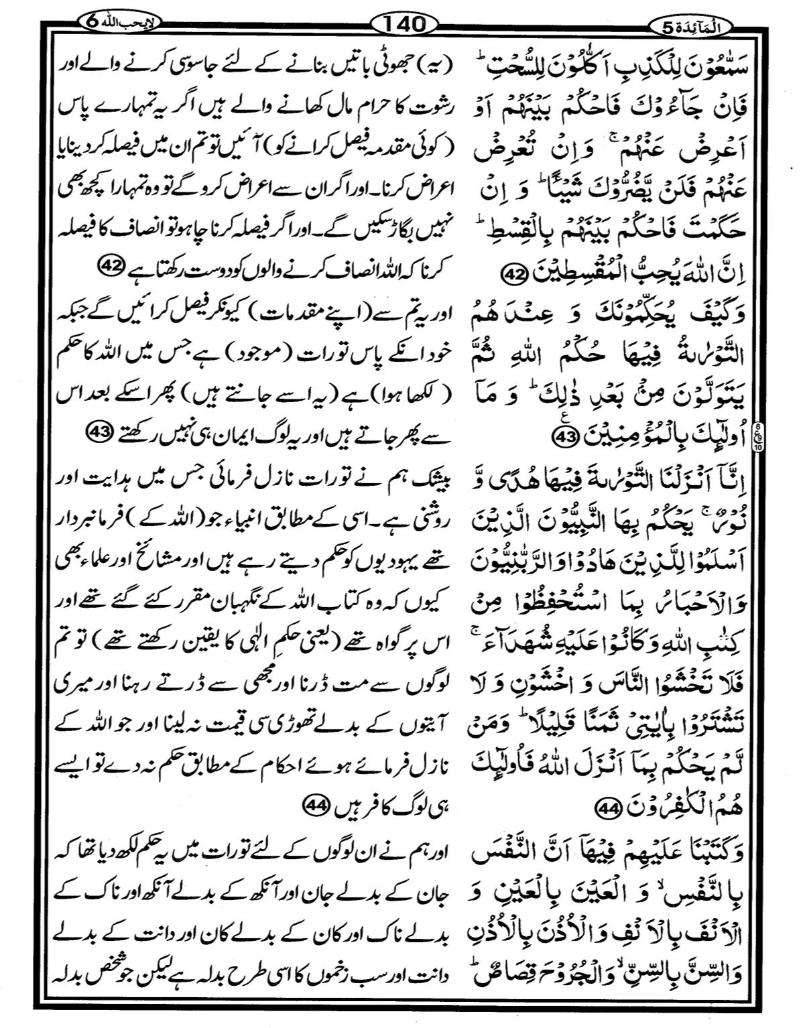 اَلْمَآئِدَة 5
140
لایحب اللہ 6
سَمّٰعُوْنَ لِلْكَذِبِ اَكّٰلُوْنَ لِلسُّحْتِ ؕ
فَاِنْ جَآءُوْكَ فَاحْكُمْ بَيْنَهُمْ اَوْ
اَعْرِضْ عَنْهُمْ ۚ وَاِنْ تُعْرِضْ
عَنْهُمْ فَلَنْ يَّضُرُّوْكَ شَيْـًٔا ؕ وَ اِنْ
حَكَمْتَ فَاحْكُمْ بَيْنَهُمْ بِالْقِسْطِ ؕ
اِنَّ اللّٰهَ يُحِبُّ الْمُقْسِطِيْنَ 42
وَكَيْفَ يُحَكِّمُوْنَكَ وَ عِنْدَهُمُ
التَّوْرٰىةُ فِيْهَا حُكْمُ اللّٰهِ ثُمَّ
يَتَوَلَّوْنَ مِنْۢ بَعْدِ ذٰلِكَ ؕ وَ مَاۤ
اُولٰٓئِكَ بِالْمُؤْمِنِيْنَ 43 ع
اِنَّاۤ اَنْزَلْنَا التَّوْرٰىةَ فِيْهَا هُدًى وَّ
نُوْرٌ ۚ يَحْكُمُ بِهَا النَّبِيُّوْنَ الَّذِيْنَ
اَسْلَمُوْا لِلَّذِيْنَ هَادُوْا وَالرَّبّٰنِيُّوْنَ
وَالْاَحْبَارُ بِمَا اسْتُحْفِظُوْا مِنْ
كِتٰبِ اللّٰهِ وَكَانُوْا عَلَيْهِ شُهَدَآءَ ۚ
فَلَا تَخْشَوُا النَّاسَ وَ اخْشَوْنِ وَ لَا
تَشْتَرُوْا بِاٰيٰتِيْ ثَمَنًا قَلِيْلًا ؕ وَمَنْ
لَّمْ يَحْكُمْ بِمَاۤ اَنْزَلَ اللّٰهُ فَاُولٰٓئِكَ
هُمُ الْكٰفِرُوْنَ 44
وَكَتَبْنَا عَلَيْهِمْ فِيْهَاۤ اَنَّ النَّفْسَ
بِالنَّفْسِ ۙ وَ الْعَيْنَ بِالْعَيْنِ وَ
الْاَنْفَ بِالْاَنْفِ وَالْاُذُنَ بِالْاُذُنِ
وَالسِّنَّ بِالسِّنِّ ۙ وَالْجُرُوْحَ قِصَاصٌ ؕ
(یہ) جھوٹی باتیں بنانے کے لئے جاسوسی کرنے والے اور
رشوت کا حرام مال کھانے والے ہیں اگر یہ تمہارے پاس
(کوئی مقدمہ فیصل کرانے کو) آئیں تو تم ان میں فیصلہ کر دینا یا
اعراض کرنا۔ اور اگر ان سے اعراض کرو گے تو وہ تمہارا کچھ بھی
نہیں بگاڑ سکیں گے۔ اور اگر فیصلہ کرنا چاہو تو انصاف کا فیصلہ
کرنا کہ اللہ انصاف کرنے والوں کو دوست رکھتا ہے 42
اور یہ تم سے (اپنے مقدمات) کیونکر فیصل کرائیں گے جبکہ
خود انکے پاس تورات (موجود) ہے جس میں اللہ کا حکم
(لکھا ہوا) ہے (یہ اسے جانتے ہیں) پھر اسکے بعد اس
سے پھر جاتے ہیں اور یہ لوگ ایمان ہی نہیں رکھتے 43
بیشک ہم نے تورات نازل فرمائی جس میں ہدایت اور
روشنی ہے۔ اسی کے مطابق انبیاء جو (اللہ کے) فرمانبردار
تھے یہودیوں کو حکم دیتے رہے ہیں اور مشائخ اور علماء بھی
کیوں کہ وہ کتاب اللہ کے نگہبان مقرر کئے گئے تھے اور
اس پر گواہ تھے (یعنی حکم الٰہی کا یقین رکھتے تھے) تو تم
لوگوں سے مت ڈرنا اور مجھی سے ڈرتے رہنا اور میری
آیتوں کے بدلے تھوڑی سی قیمت نہ لینا اور جو اللہ کے
نازل فرمائے ہوئے احکام کے مطابق حکم نہ دے تو ایسے
ہی لوگ کافر ہیں 44
اور ہم نے ان لوگوں کے لئے تورات میں یہ حکم لکھ دیا تھا کہ
جان کے بدلے جان اور آنکھ کے بدلے آنکھ اور ناک کے
بدلے ناک اور کان کے بدلے کان اور دانت کے بدلے
دانت اور سب زخموں کا اسی طرح بدلہ ہے لیکن جو شخص بدلہ